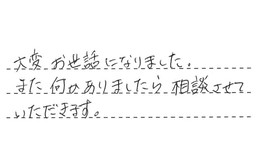 大変お世話になりました。
また何かありましたら相談させて
いただきます。